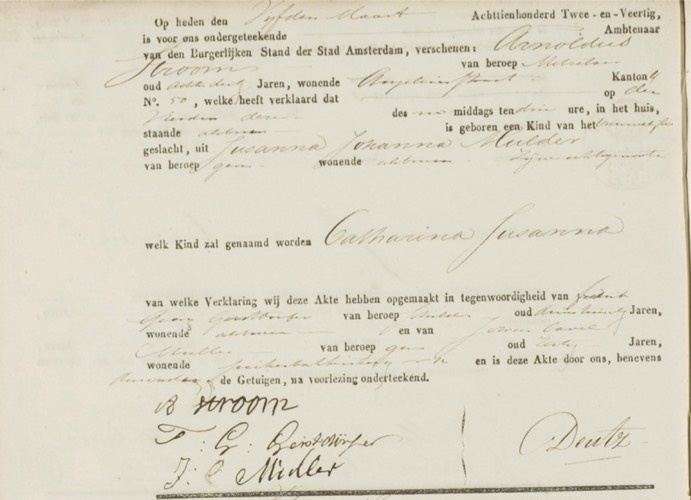 Op heden den Vijfden Maart Achttienhonderd Twee-en-Veertig,
is voor ons ondergeteekende Ambtenaar
van den Burgerlijken Stand der Stad Amsterdam, verschenen: Arnoldus
Stroom van beroep Metselaar
oud Jaren, wonende Kanton 4
N°. 50, welke heeft verklaard dat op den
Vierden dezer des middags ten drie ure, in het huis,
staande alhier is geboren een Kind van het vrouwelijke
geslacht, uit Susanna Johanna Mulder
van beroep geen wonende alhier zijne echtgenoote
welk Kind zal genaamd worden Catharina Susanna
van welke Verklaring wij deze Akte hebben opgemaakt in tegenwoordigheid van
van beroep oud Jaren,
wonende en van
van beroep geen oud Jaren,
wonende en is deze Akte door ons, benevens
de Getuigen, na voorlezing onderteekend.
A Stroom
F: G: Gerstdörfer
J: C Muller
Deutz